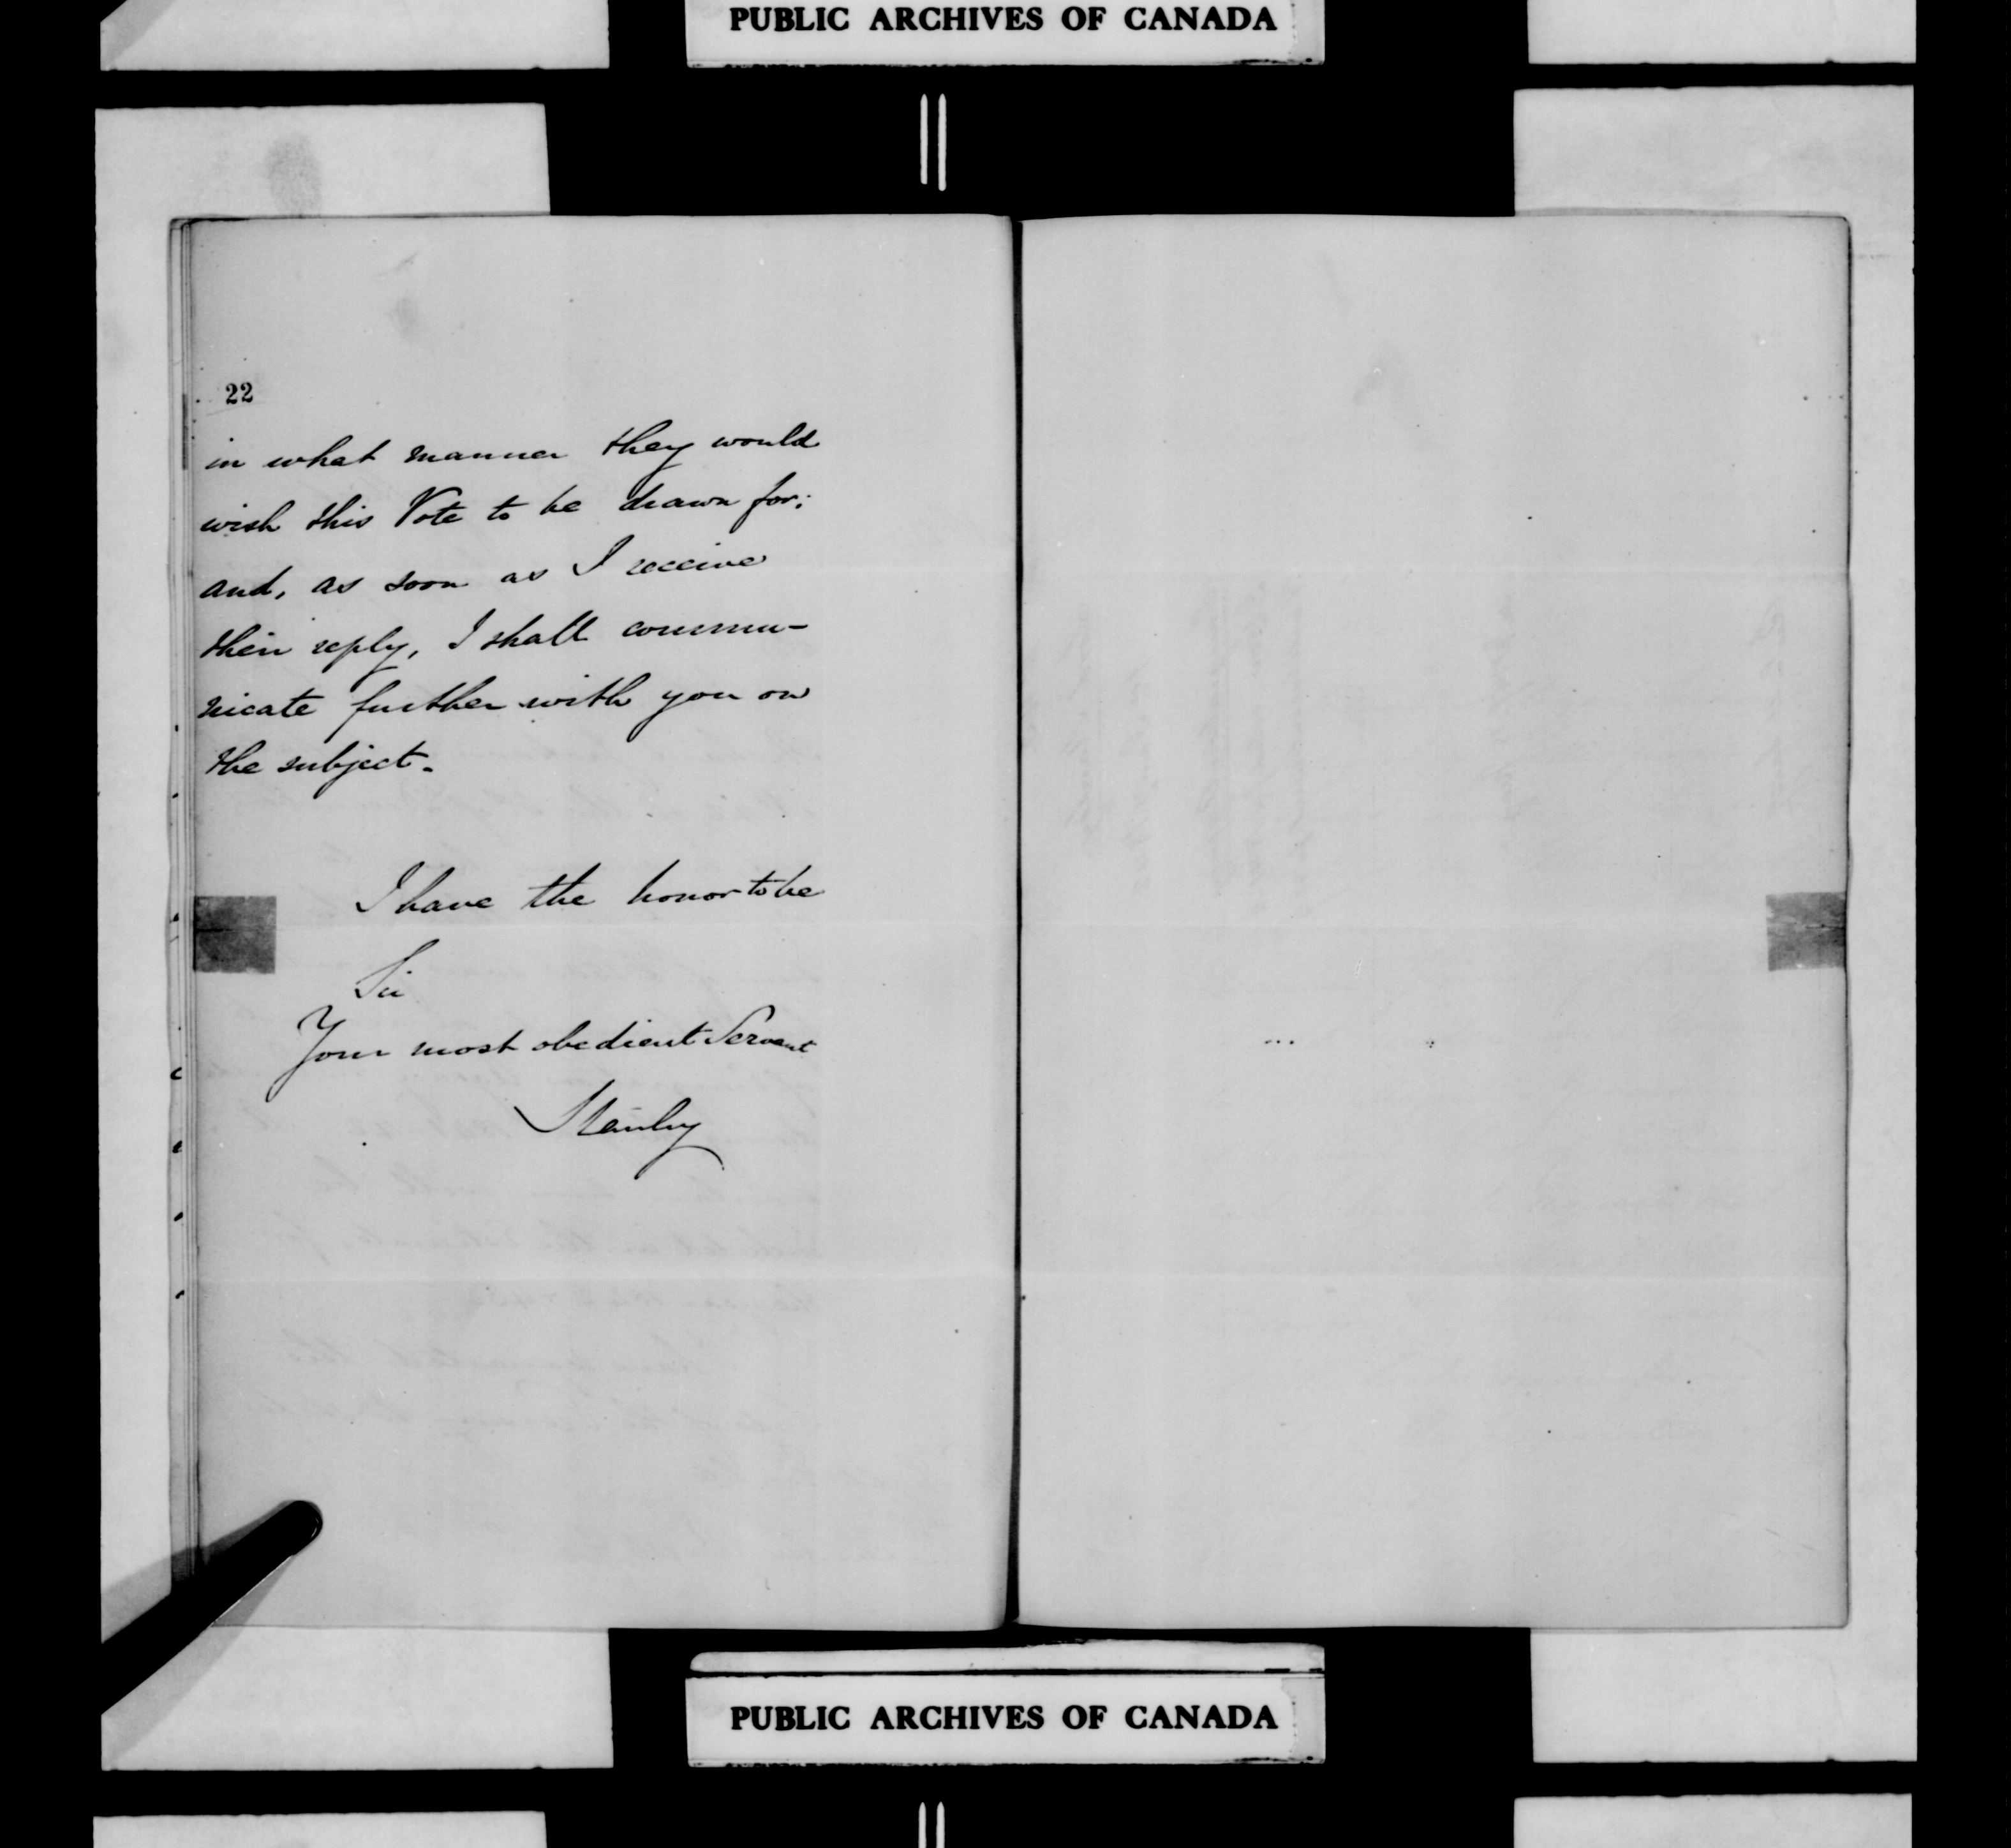 PUBLIC ARCHIVES OF CANADA
22
in what manner they would
wish this Vote to be drawn for;
and, as soon as I receive
their reply, I shall commu-
nicate further with you on
the subject.
I have the honor to be
Sir
Your most obedient Servant
Stanley
PUBLIC ARCHIVES OF CANADA